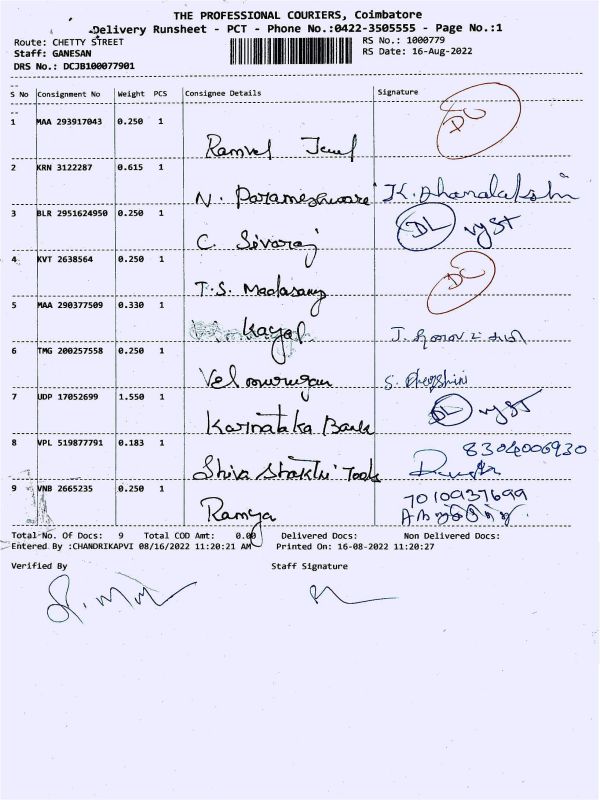 THE PROFESSIONAL COURIERS, Coimbatore
Delivery Runsheet - PCT - Phone No.:0422-3505555 - Page No.:1
Route: CHETTY STREET RS No.: 1000779
Staff: GANESAN RS Date: 16-Aug-2022
DRS No.: DCJB100077901
S No Consignment No Weight PCS Consignee Details Signature
1 MAA 293917043 0.250 1
2 KRN 3122287 0.615 1
N. Parameshwari K. Dhanalakshmi
3 BLR 2951624950 0.250 1 DL
C. Sivaraj
4 KVT 2638564 0.250 1
T.S. Madasamy
5 MAA 290377509 0.330 1
Kayal J.
6 TMG 200257558 0.250 1
Velmurugan S.
7 UDP 17052699 1.550 1 DL
Karnataka Bank
8 VPL 519877791 0.183 1 8304006930
Shiva Shakthi Tools
9 VNB 2665235 0.250 1 7010937699
Ramya
Total No. Of Docs: 9 Total COD Amt: 0.00 Delivered Docs: Non Delivered Docs:
Entered By :CHANDRIKAPVI 08/16/2022 11:20:21 AM Printed On: 16-08-2022 11:20:27
Verified By Staff Signature